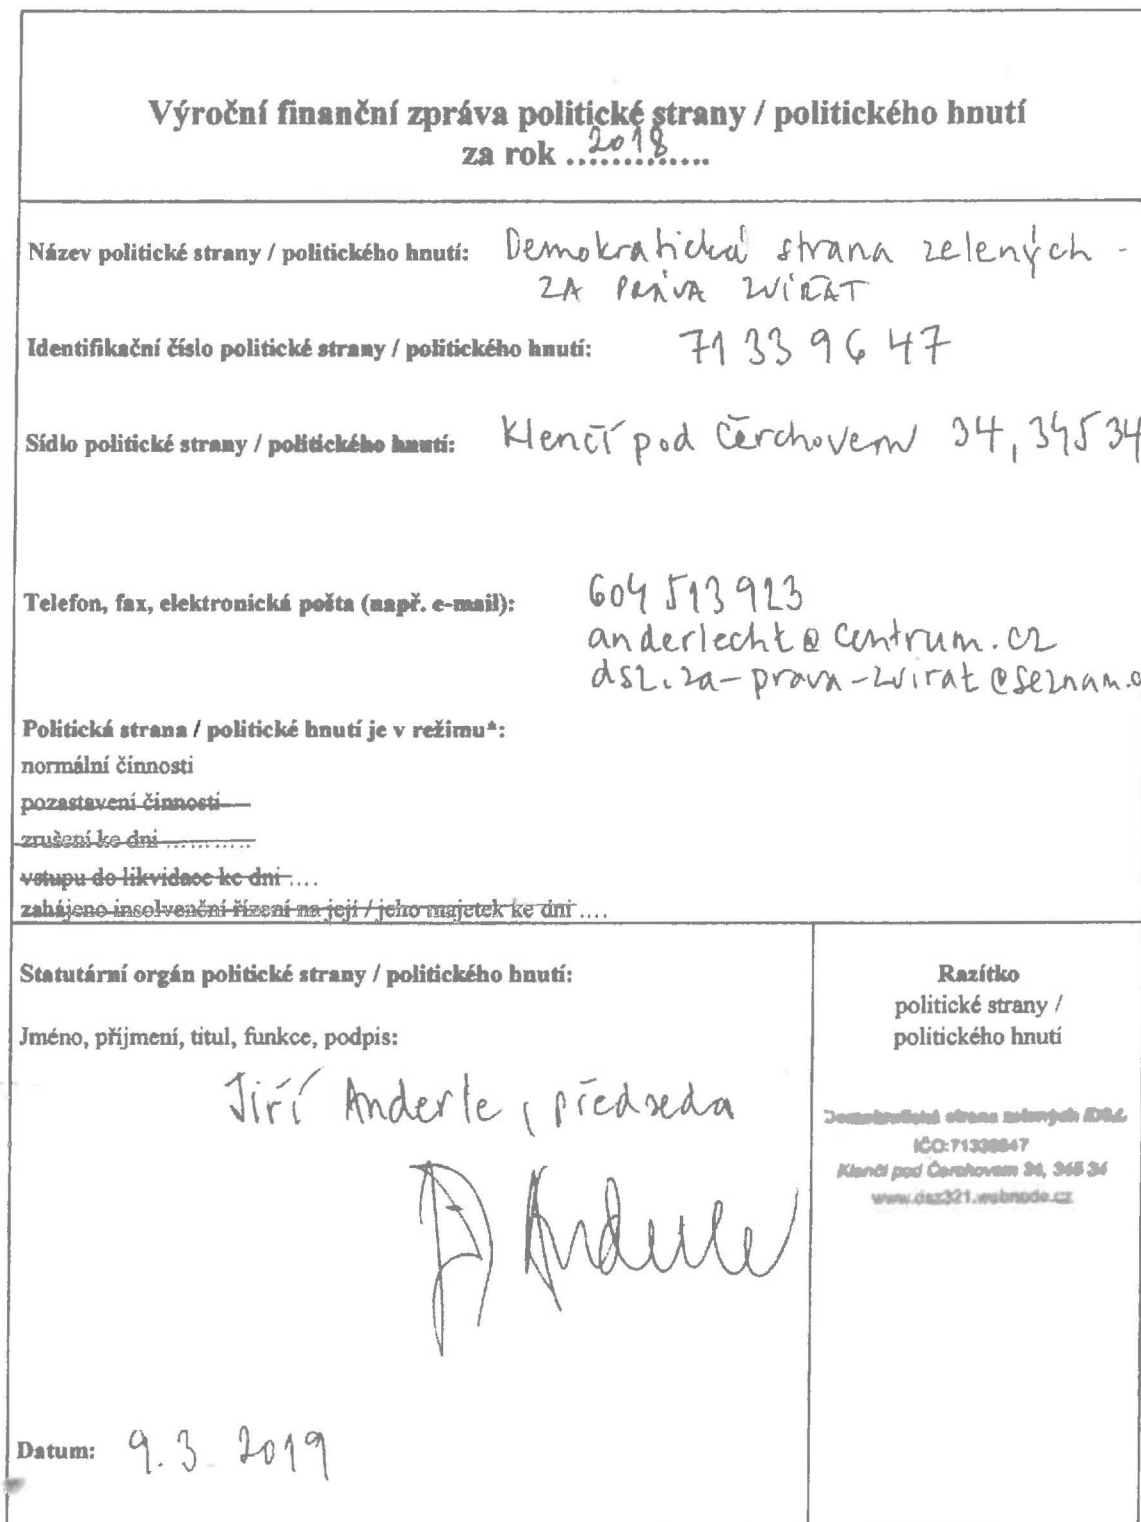 Výroční finanční zpráva politické strany / politického hnutí
za rok ....2018....
Název politické strany / politického hnutí: Demokratická strana zelených -
ZA PRÁVA ZVÍŘAT
Identifikační číslo politické strany / politického hnutí: 71339647
Sídlo politické strany / politického hnutí: Klenčí pod Čerchovem 34, 34534
Telefon, fax, elektronická pošta (např. e-mail): 604 513 923
anderlecht@centrum.cz
dsz.za-prava-zvirat@seznam.c
Politická strana / politické hnutí je v režimu*:
normální činnosti
pozastavení činnosti
zrušení ke dni ...........
vstupu do likvidace ke dni ....
zahájeno insolvenční řízení na její / jeho majetek ke dni ....
Statutární orgán politické strany / politického hnutí:
Jméno, příjmení, titul, funkce, podpis:
Jiří Anderle, předseda
Anderle
Datum: 9.3.2019
Razítko
politické strany /
politického hnutí
Demokratická strana zelených
IČO:71339647
Klenčí pod Čerchovem 34, 345 34
www.dsz321.webnode.cz